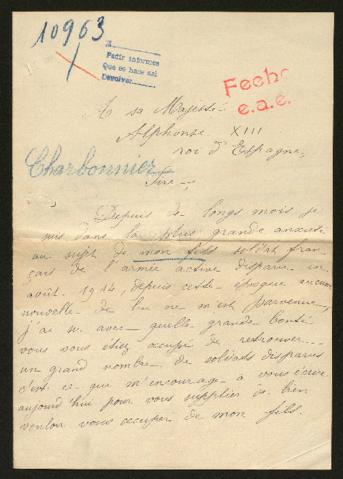 10963
A
Pedir informes
Que se hace así
Devolver
Fecho
e.a.e.
A sa Majesté
Alphonse XIII
roi d'Espagne,
Charbonnier
Sire,
Depuis de longs mois je
suis dans la plus grande anxiété
au sujet de mon fils soldat fran-
çais de l'armée active disparu en
août 1914, depuis cette époque aucune
nouvelle de lui ne m'est parvenue,
j'ai su avec quelle grande bonté
vous vous étiez occupé de retrouver
un grand nombre de soldats disparus
c'est ce qui m'encourage à vous écrire
aujourd'hui pour vous supplier de bien
vouloir vous occuper de mon fils.